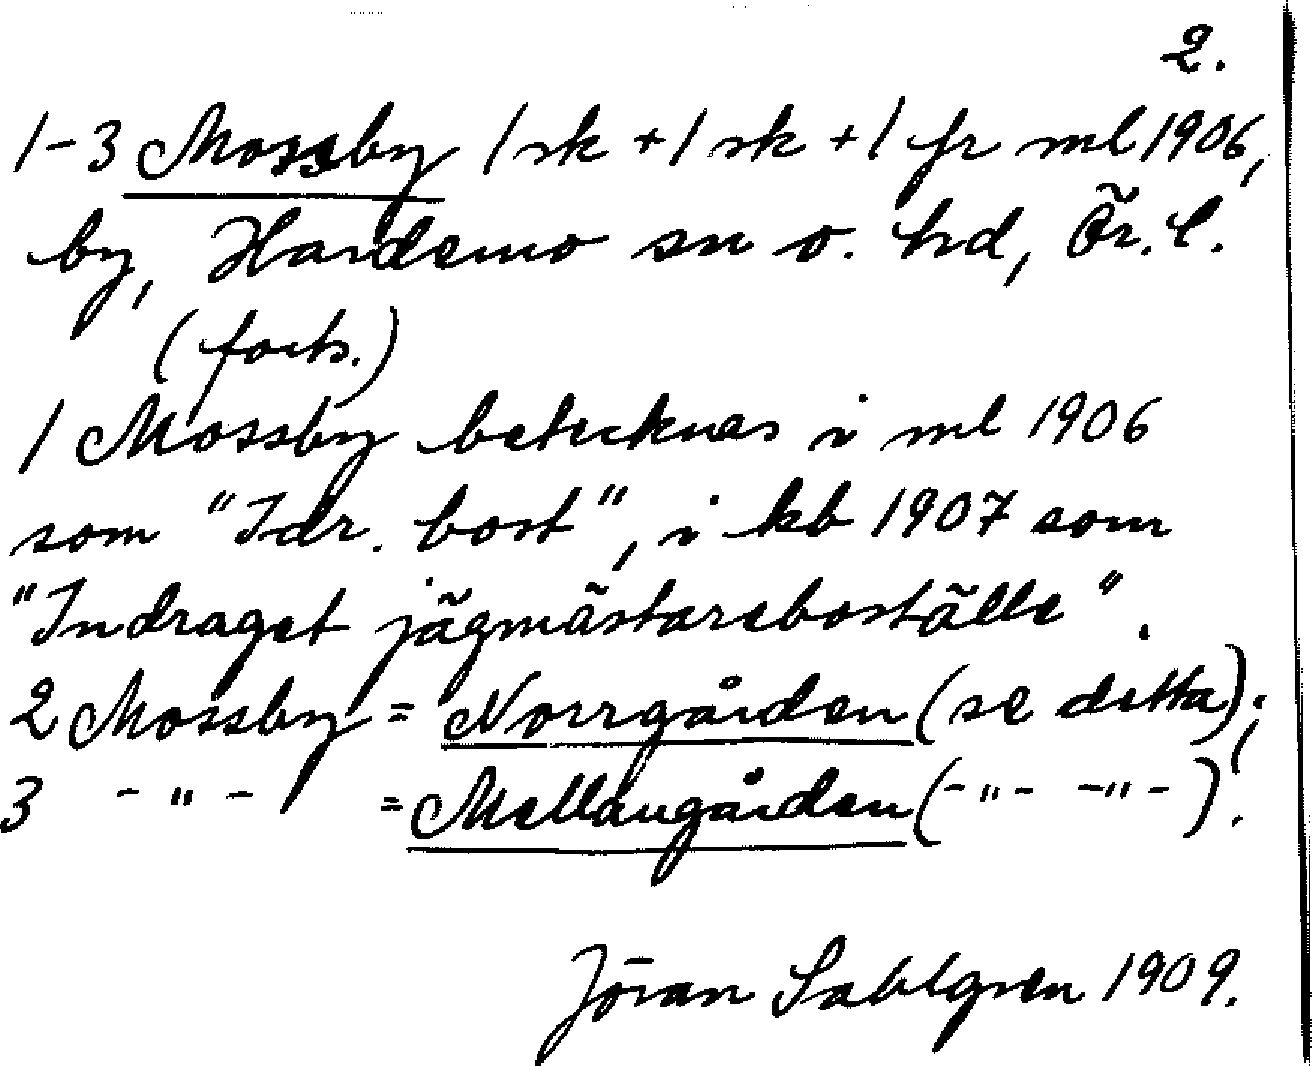 2.
1-3 Mossby 1 sk + 1 sk + 1 fr ml 1906,
by, Hardemo sn o. hd, Ör. l.
(forts.)
1 Mossby betecknas i ml 1906
som "Idr. bost", i kb 1907 som
"Indraget jägmästareboställe".
2 Mossby = Norrgården (se detta);
3 - " - = Mellangården (- " - - " - ).
Jöran Sahlgren 1909.